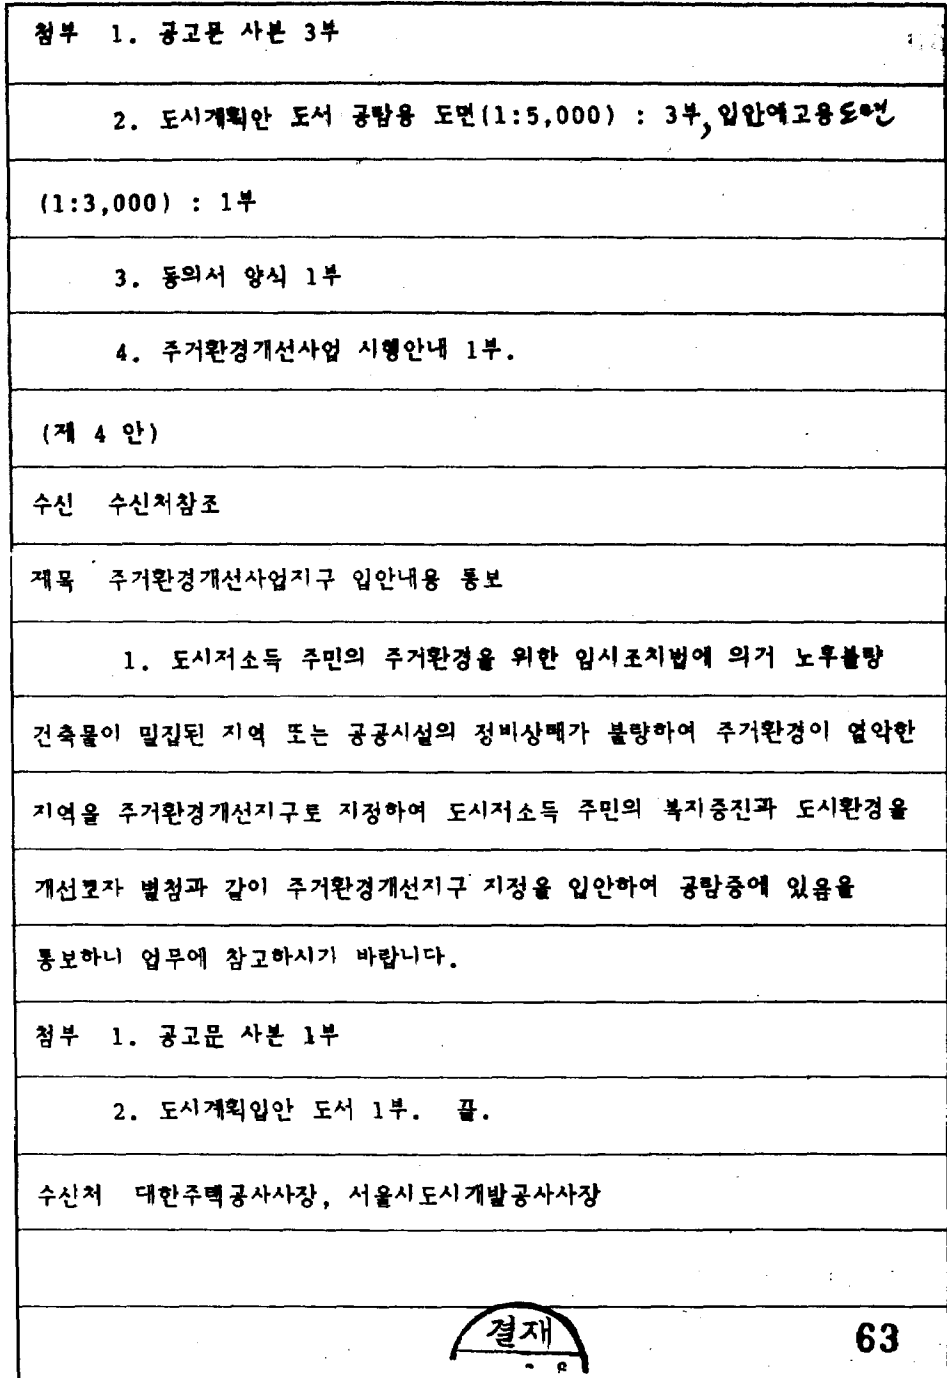 첨부 1. 공고문 사본 3부
2. 도시계획안 도서 공람용 도면(1:5,000) : 3부, 입안예고용도면
(1:3,000) : 1부
3. 동의서 양식 1부
4. 주거환경개선사업 시행안내 1부.
(제 4 안)
수신 수신처참조
제목 주거환경개선사업지구 입안내용 통보
1. 도시저소득 주민의 주거환경을 위한 임시조치법에 의거 노후불량
건축물이 밀집된 지역 또는 공공시설의 정비상태가 불량하여 주거환경이 열악한
지역을 주거환경개선지구로 지정하여 도시저소득 주민의 복지증진과 도시환경을
개선코자 별첨과 같이 주거환경개선지구 지정을 입안하여 공람중에 있음을
통보하니 업무에 참고하시기 바랍니다.
첨부 1. 공고문 사본 1부
2. 도시계획입안 도서 1부. 끝.
수신처 대한주택공사사장, 서울시도시개발공사사장
결재
63